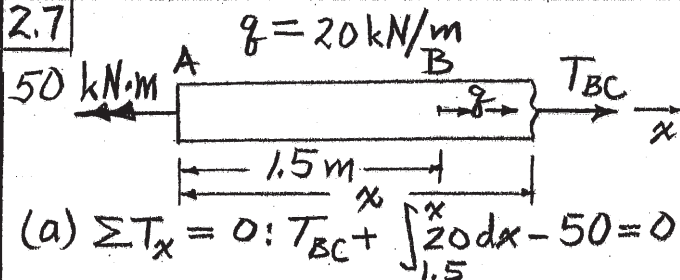 2.7
q = 20 kN/m
50 kN·m A B T_BC
q
x
1.5 m
x
(a) ΣT_x = 0: T_BC + ∫_{1.5}^{x} 20 dx - 50 = 0